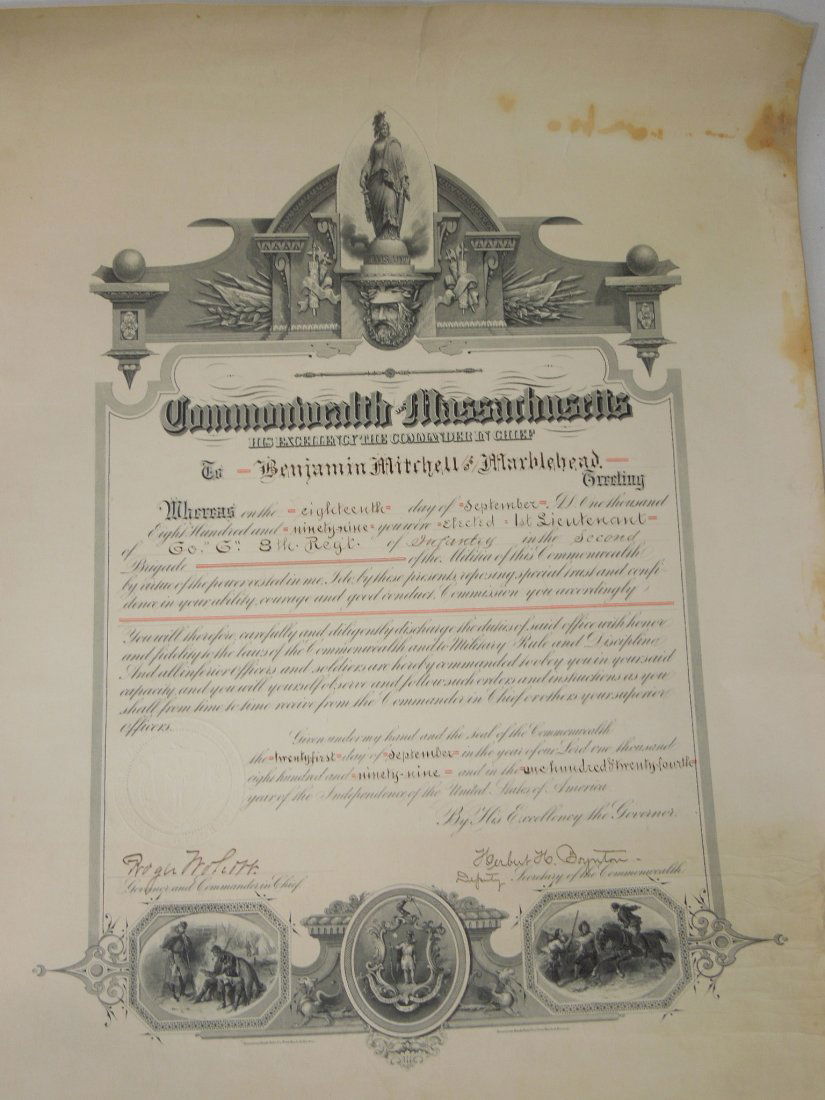 Commonwealth of Massachusetts
HIS EXCELLENCY THE COMMANDER IN CHIEF
To Benjamin Mitchell of Marblehead.
Greeting
Whereas on the eighteenth day of September A.D. One thousand
Eight Hundred and ninety-nine you were elected 1st Lieutenant
of Co. "G" 8th. Regt. of Infantry in the Second
Brigade of the Militia of this Commonwealth
by virtue of the power vested in me, I do, by these presents, reposing special trust and confi-
dence in your ability, courage and good conduct, Commission you accordingly
You will therefore, carefully and diligently discharge the duties of said office with honor
and fidelity to the laws of the Commonwealth and to Military Rule and Discipline
And all inferior Officers and soldiers are hereby commanded to obey you in your said
capacity, and you will yourself observe and follow such orders and instructions as you
shall from time to time receive from the Commander in Chief or others your superior
Officers.
Given under my hand and the seal of the Commonwealth
the twenty first day of September in the year of our Lord one thousand
eight hundred and ninety-nine and in the one hundred & twenty fourth
year of the Independence of the United States of America
By His Excellency the Governor.
Roger Wolcott.
Herbert H. Boynton
Governor and Commander in Chief.
Deputy Secretary of the Commonwealth